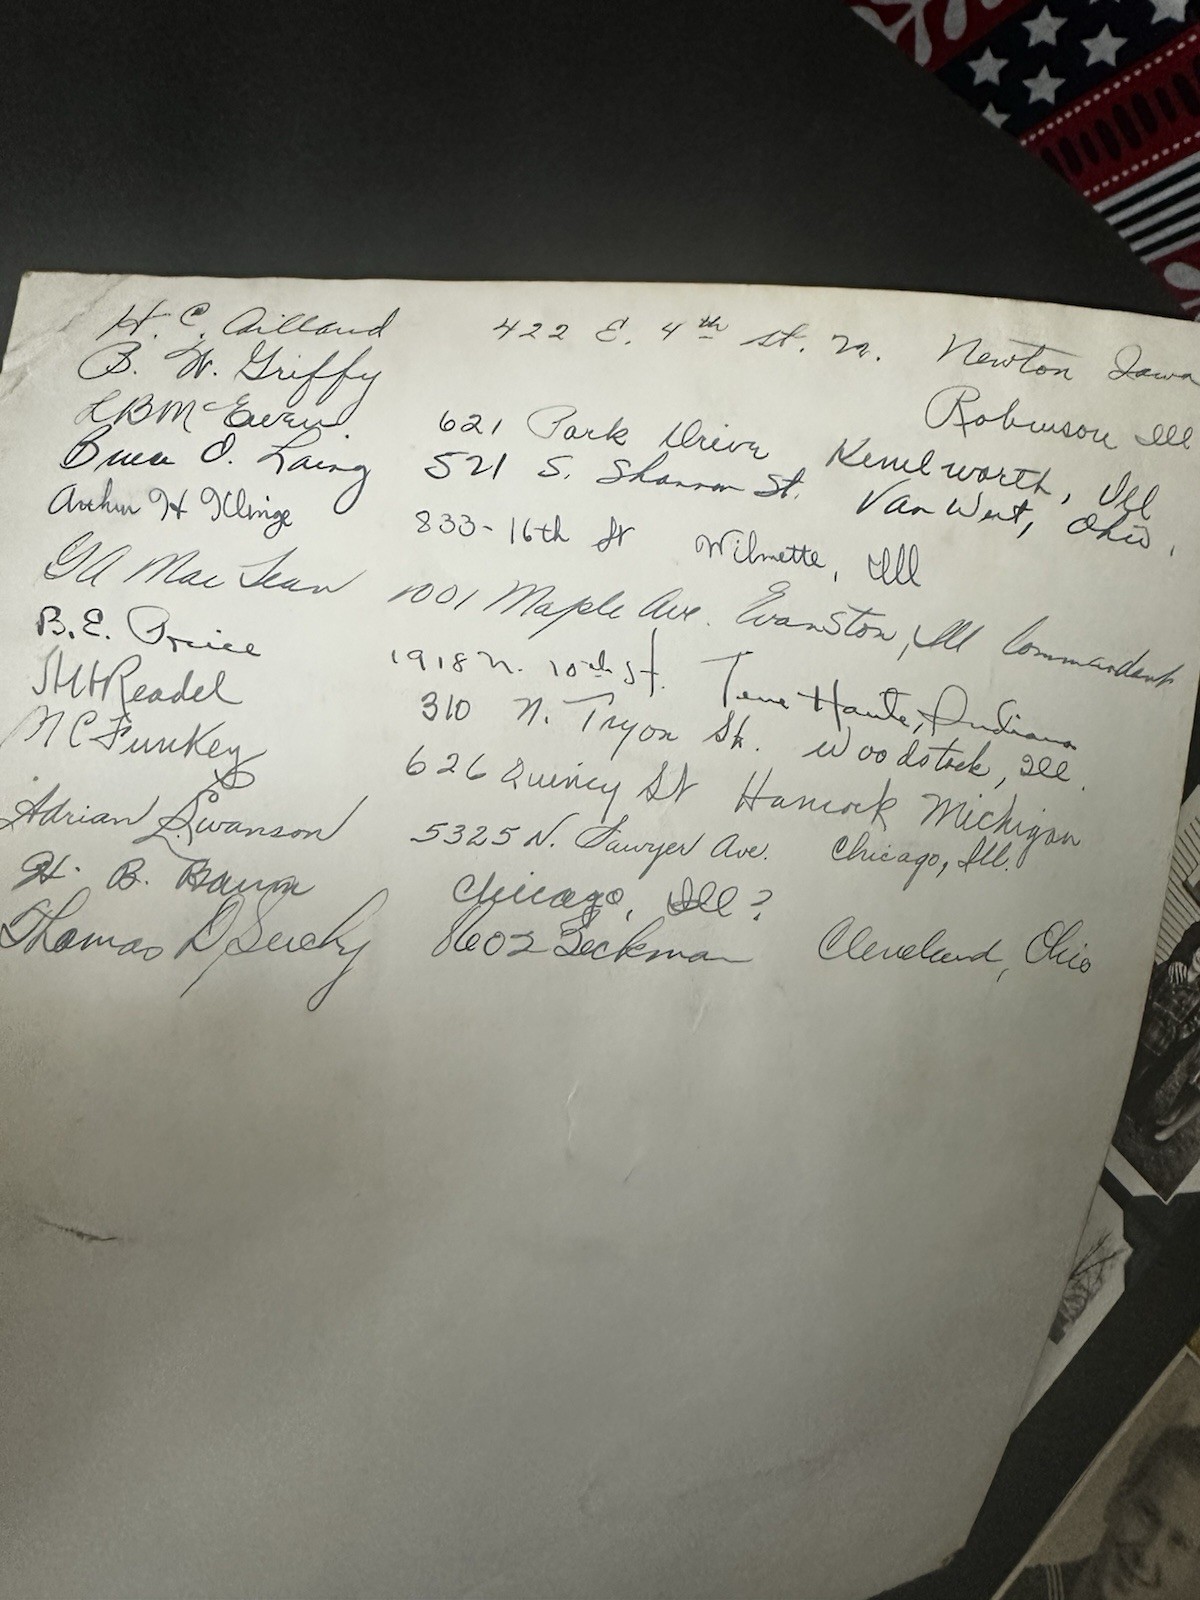 H. C. Ailland 422 E. 4th St. N. Newton Iowa
B. W. Griffy Robinson Ill
LBMcEwen 621 Park Drive Kenilworth, Ill
Bruce O. Laing 521 S. Shannon St. Van Wert, Ohio.
Arthur H Klinge 833-16th St Wilmette, Ill
GA MacLean 1001 Maple Ave. Evanston, Ill Commandant
B. E. Price 1918 N. 10th St. Terre Haute, Indiana
Readel 310 N. Tryon St. Woodstock, Ill.
NC Funkey 626 Quincy St Hancock Michigan
Adrian L. Swanson 5325 N. Sawyer Ave. Chicago, Ill.
H. B. Baum Chicago, Ill?
Thomas D Suchy 8602 Beckman Cleveland, Ohio